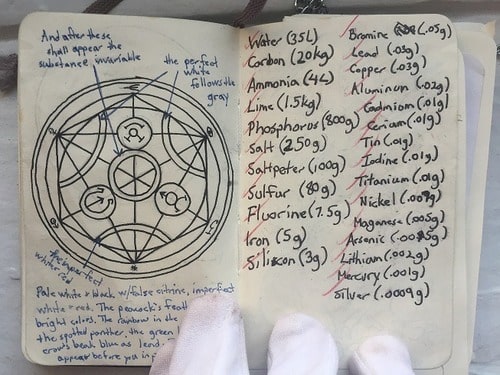 And after these
shall appear the
substance invariable
the perfect
white
follows the
gray
the imperfect
white red
Pale white & black w/false citrine, imperfect
white & red. The peacock's feath
bright colors. The rainbow in the
the spotted panther, the green l
crow's beak blue as lead
appear before you in p
Water (35L)
Carbon (20kg)
Ammonia (4L)
Lime (1.5kg)
Phosphorus (800g)
Salt (250g)
Saltpeter (100g)
Sulfur (80g)
Fluorine (7.5g)
Iron (5g)
Silicon (3g)
Bromine (.05g)
Lead (.05g)
Copper (.03g)
Aluminum (.02g)
Cadmium (.01g)
Cerium (.01g)
Tin (.01g)
Iodine (.01g)
Titanium (.01g)
Nickel (.009g)
Maganese (.005g)
Arsenic
Lithium (.002g)
Mercury (.001g)
Silver (.0009g)